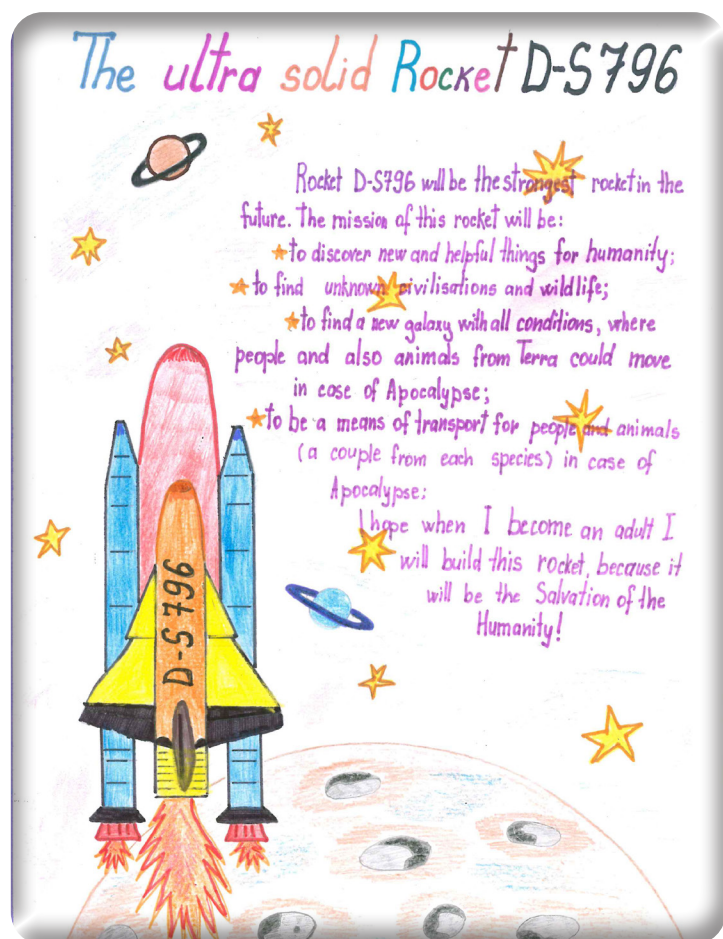 The ultra solid Rocket D-S796
Rocket D-S796 will be the strongest rocket in the
future. The mission of this rocket will be:
to discover new and helpful things for humanity;
to find unknown civilisations and wildlife;
to find a new galaxy with all conditions, where
people and also animals from Terra could move
in case of Apocalypse;
to be a means of transport for people and animals
(a couple from each species) in case of
Apocalypse;
I hope when I become an adult I
will build this rocket, because it
will be the Salvation of the
Humanity!
D-S796